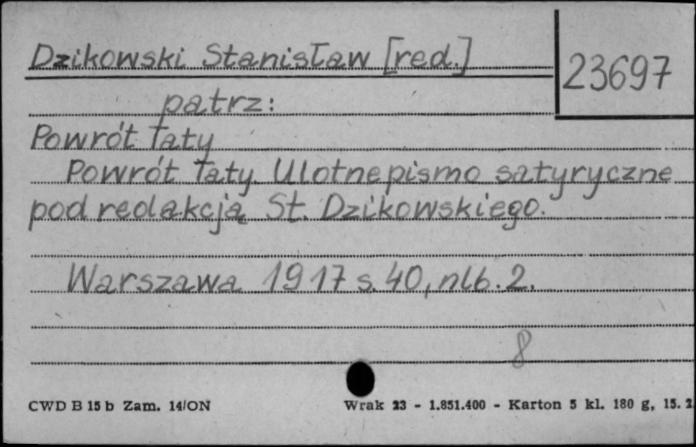 Dzikowski Stanisław [red.]
23697
patrz:
Powrót Taty
Powrót Taty. Ulotne pismo satyryczne
pod redakcją St. Dzikowskiego.
Warszawa 1917 s. 40, nlb. 2.
8
CWD B 15 b Zam. 14/ON
Wrak 23 - 1.851.400 - Karton 5 kl. 180 g, 15. 2